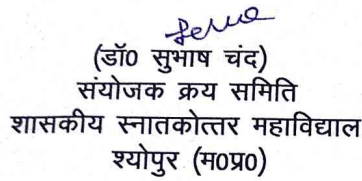 (डॉ0 सुभाष चंद)
संयोजक क्रय समिति
शासकीय स्नातकोत्तर महाविद्याल
श्योपुर (म0प्र0)